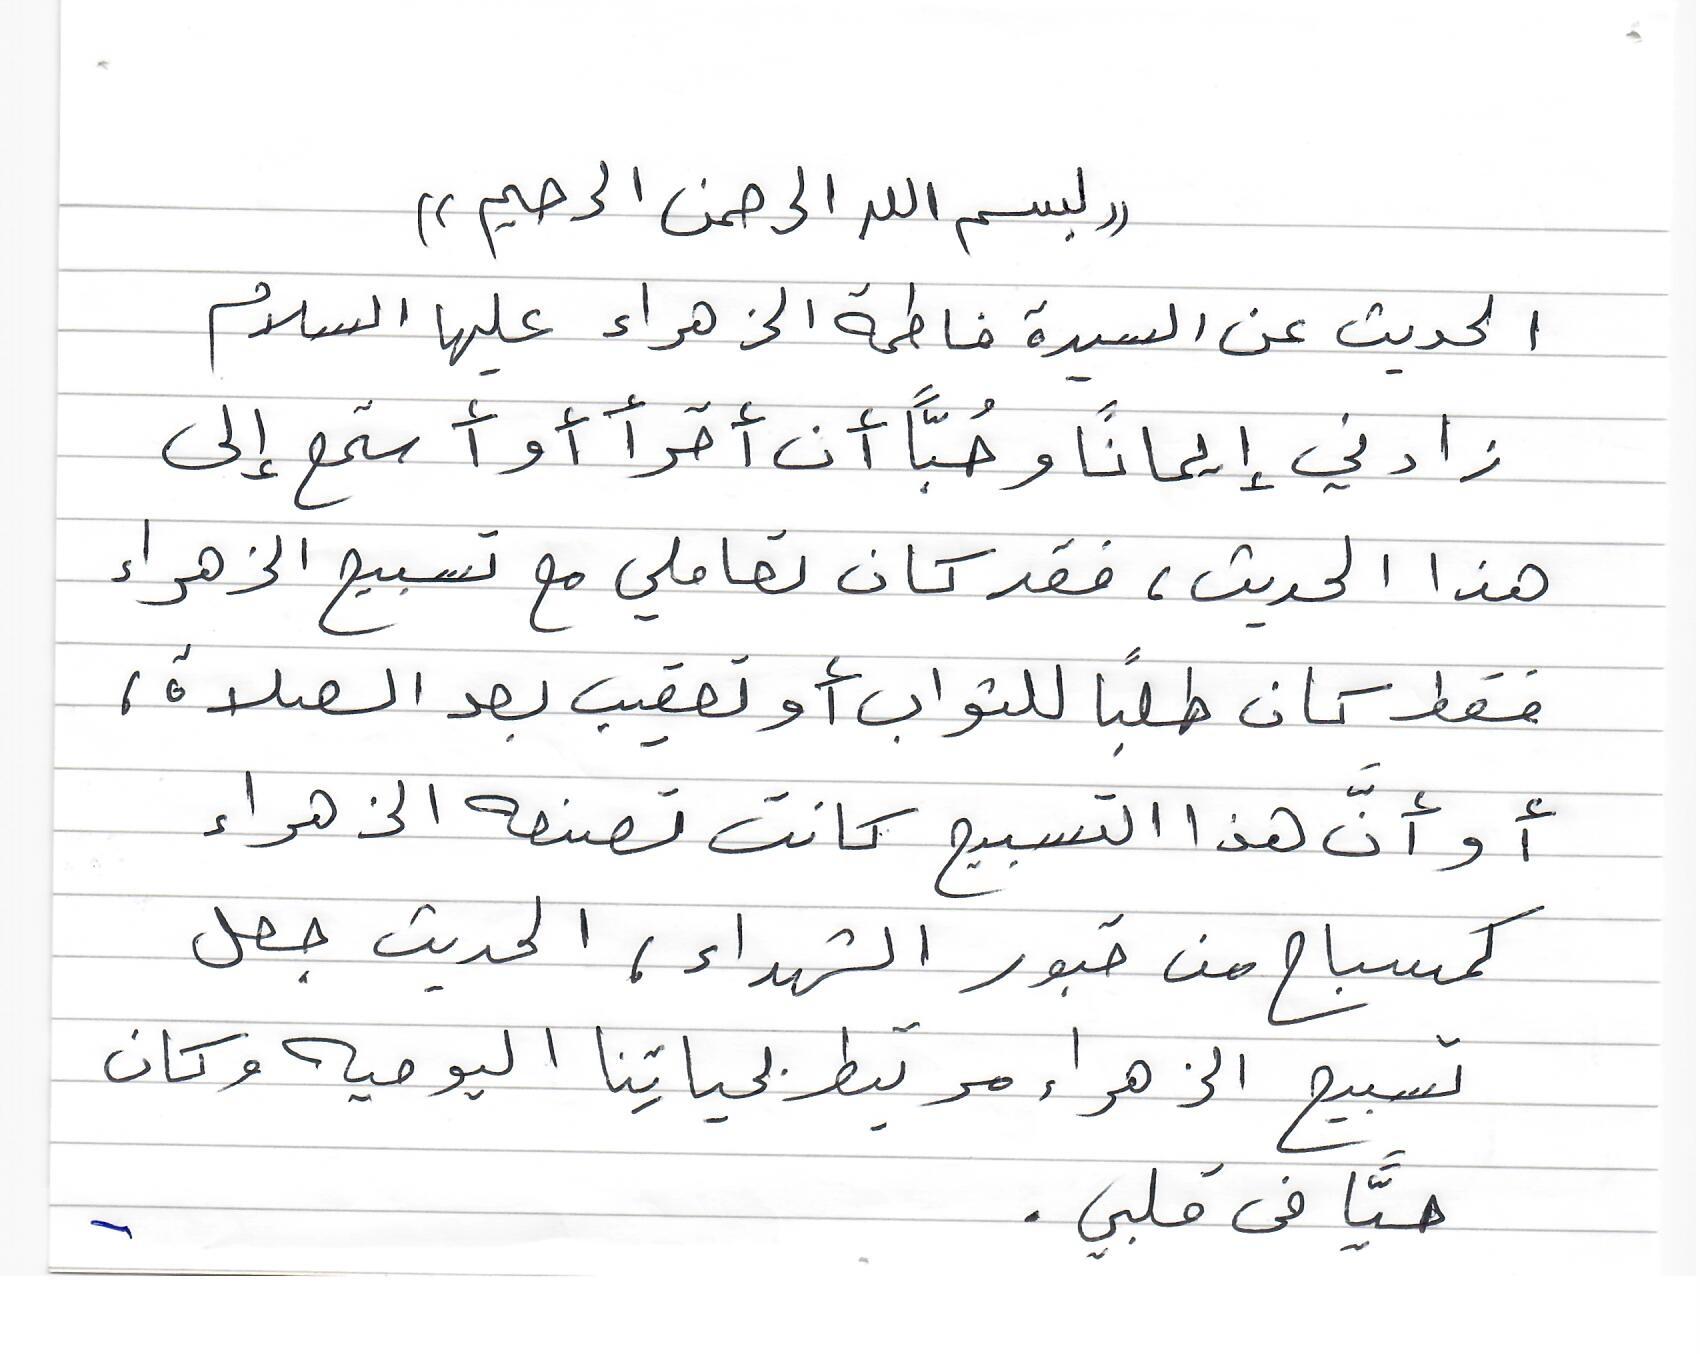 «بسم الله الرحمن الرحيم»
الحديث عن السيدة فاطمة الزهراء عليها السلام
زادني إيمانًا وحُبًّا أن أقرأ أو أستمع إلى
هذا الحديث، فقد كان تعاملي مع تسبيح الزهراء
فقط كان طلبًا للثواب أو تعقيب بعد الصلاة،
أو أنَّ هذا التسبيح كانت تصنعه الزهراء
كمسباح من قبور الشهداء، الحديث جعل
تسبيح الزهراء مرتبط بحياتِنا اليوميه وكان
حيًّا في قلبي.
١